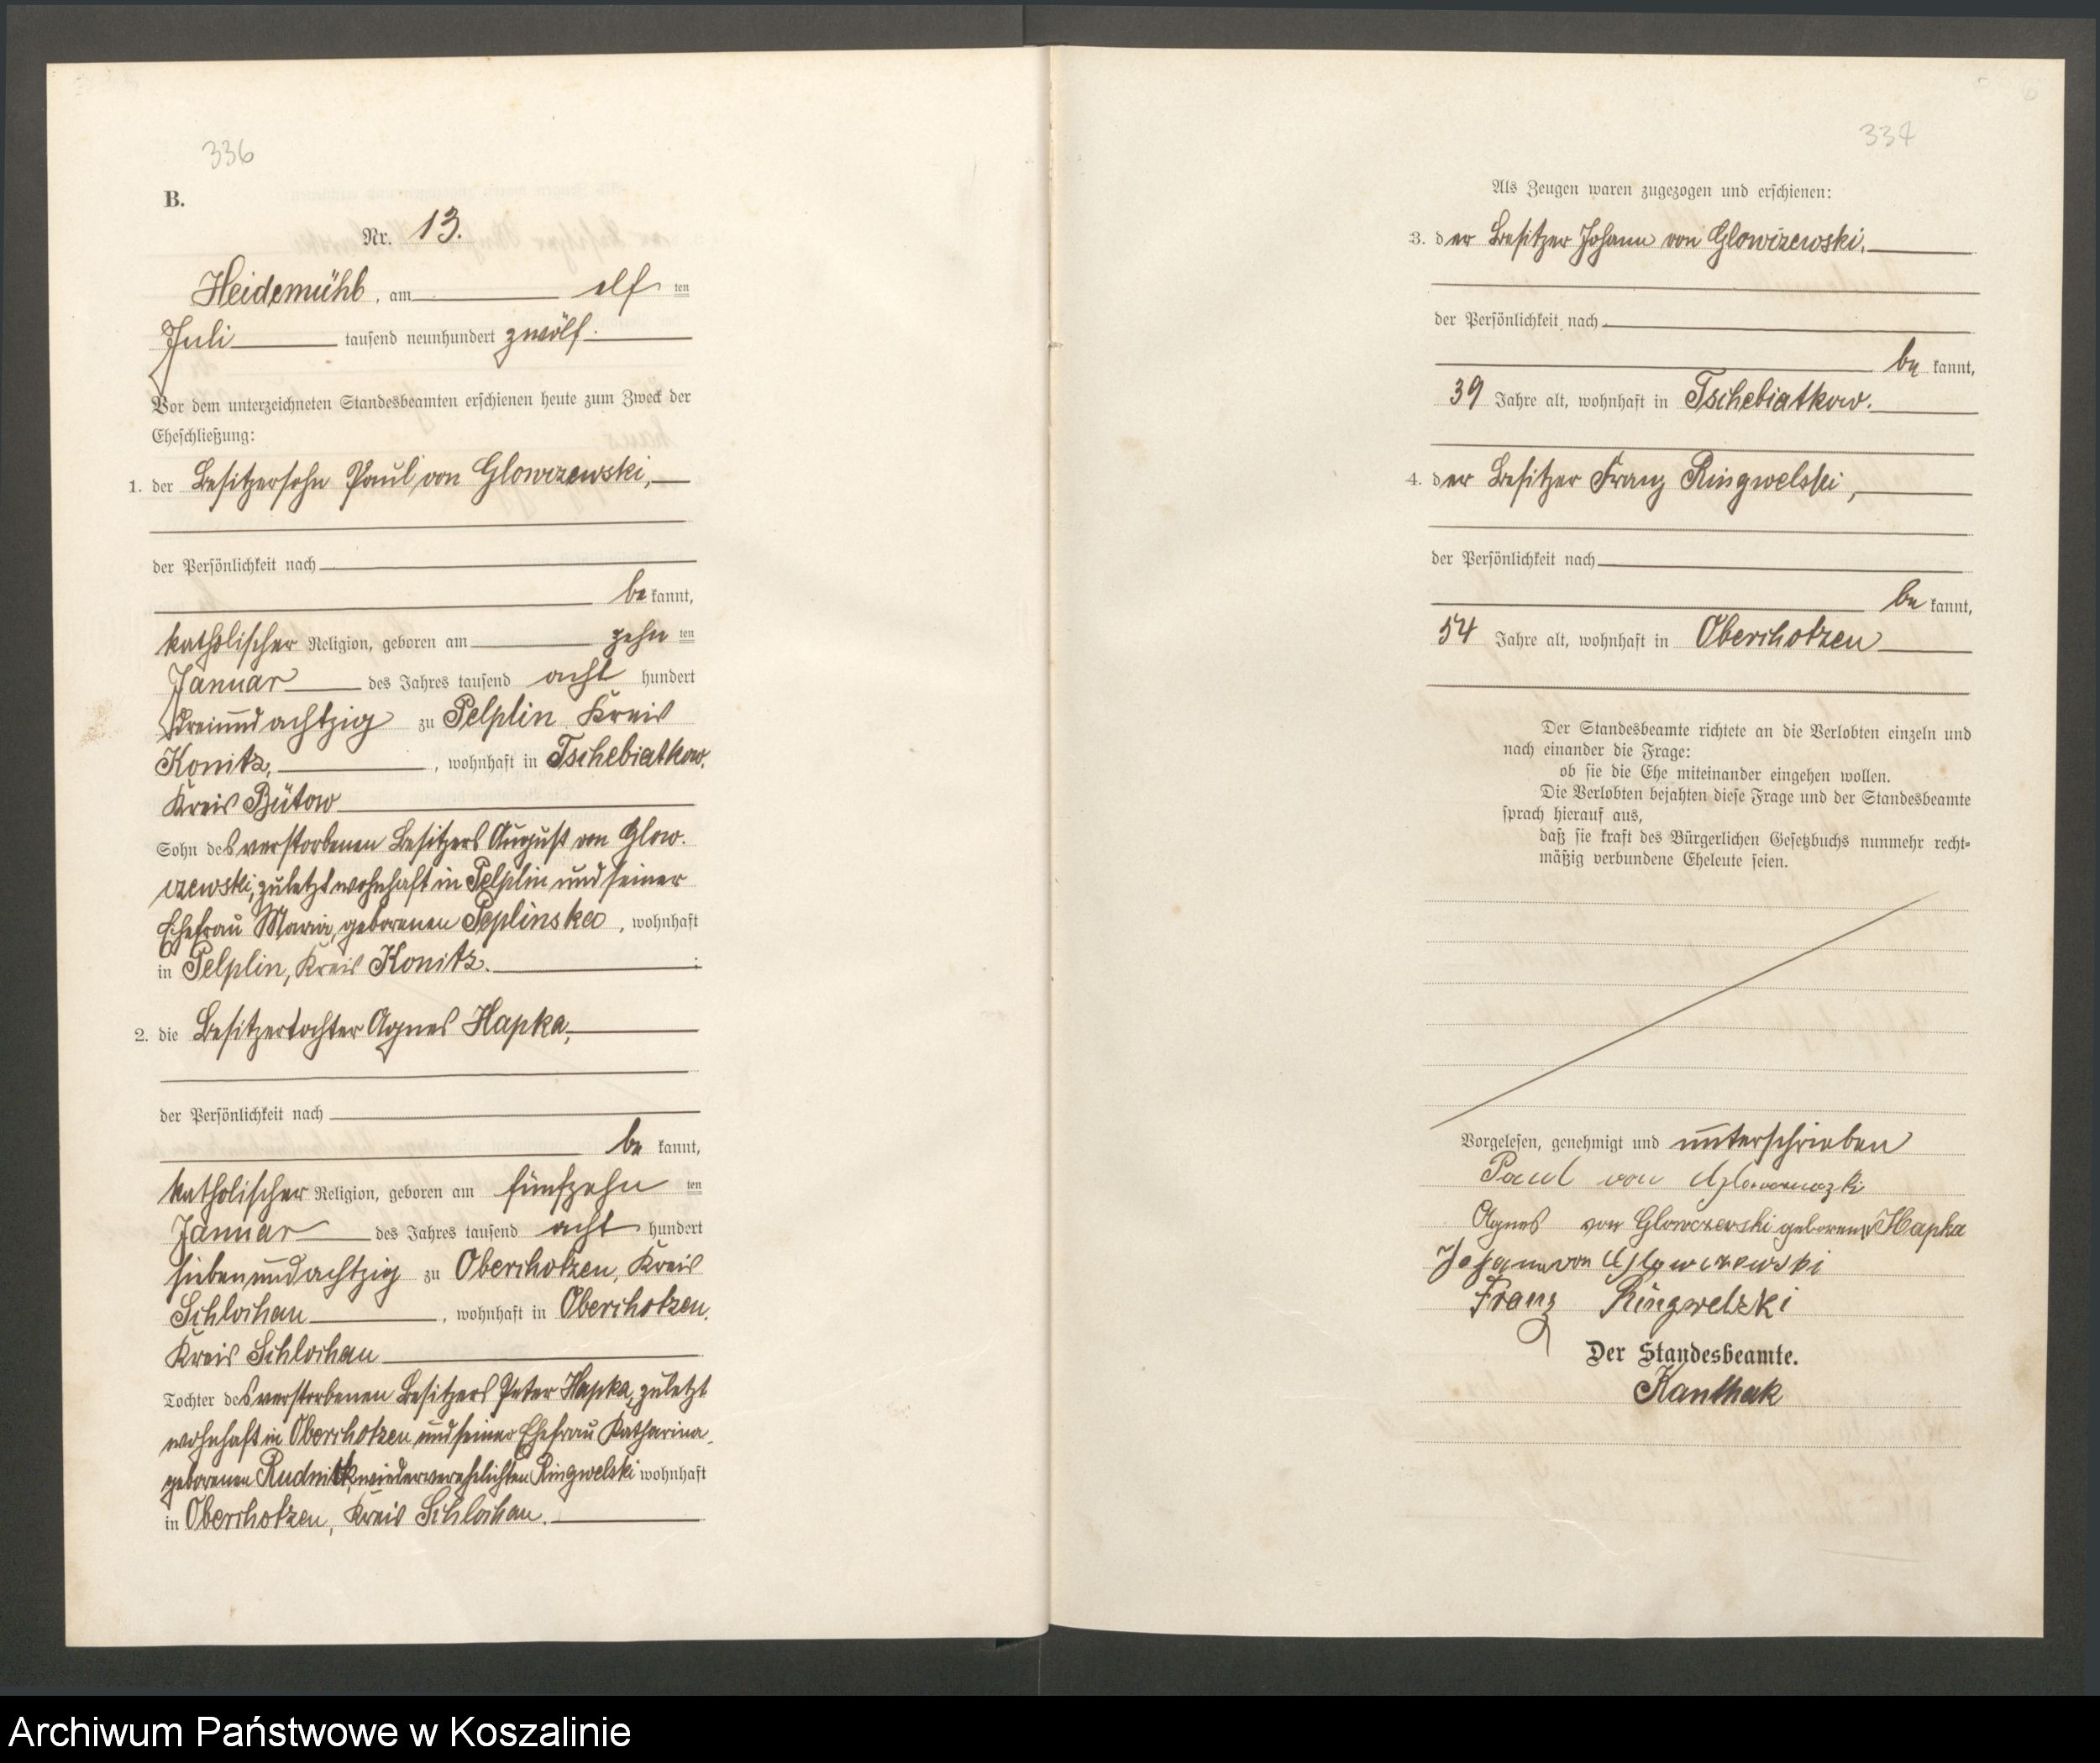 336
B.
Nr. 13.
Heidemühl, am elf ten
Juli tausend neunhundert zwölf.
Vor dem unterzeichneten Standesbeamten erschienen heute zum Zweck der
Eheschließung:
1. der Besitzersohn Paul von Glowczewski,
der Persönlichkeit nach
be kannt,
katholischer Religion, geboren am zehn ten
Januar des Jahres tausend acht hundert
dreiundachtzig zu Pelplin Kreis
Konitz, , wohnhaft in Tschebiatkow.
Kreis Bütow
Sohn des verstorbenen Besitzers August von Glow.
czewski, zuletzt wohnhaft in Pelplin und seiner
Ehefrau Maria, geborenen Peplinska , wohnhaft
in Pelplin, Kreis Konitz. ;
2. die Besitzertochter Agnes Hapka,
der Persönlichkeit nach
be kannt,
katholischer Religion, geboren am fünfzehn ten
Januar des Jahres tausend acht hundert
siebenundachtzig zu Oberchotzen, Kreis
Schlochau , wohnhaft in Oberchotzen.
Kreis Schlochau
Tochter des verstorbenen Besitzers Peter Hapka, zuletzt
wohnhaft in Oberchotzen und seiner Ehefrau Katharina
geborenen Rudnik wiederverehelichten Ringwelski wohnhaft
in Oberchotzen, Kreis Schlochau.
337
Als Zeugen waren zugezogen und erschienen:
3. der Besitzer Johann von Glowczewski,
der Persönlichkeit nach
be kannt,
39 Jahre alt, wohnhaft in Tschebiatkow.
4. der Besitzer Franz Ringwelski,
der Persönlichkeit nach
be kannt,
54 Jahre alt, wohnhaft in Oberchotzen
Der Standesbeamte richtete an die Verlobten einzeln und
nach einander die Frage:
ob sie die Ehe miteinander eingehen wollen.
Die Verlobten bejahten diese Frage und der Standesbeamte
sprach hierauf aus,
daß sie kraft des Bürgerlichen Gesetzbuchs nunmehr recht-
mäßig verbundene Eheleute seien.
Vorgelesen, genehmigt und unterschrieben
Paul von
Agnes von Glowczewski geborene Hapka
Johann von Glowczewski
Franz Ringwelzki
Der Standesbeamte.
Kanthak
Archiwum Państwowe w Koszalinie